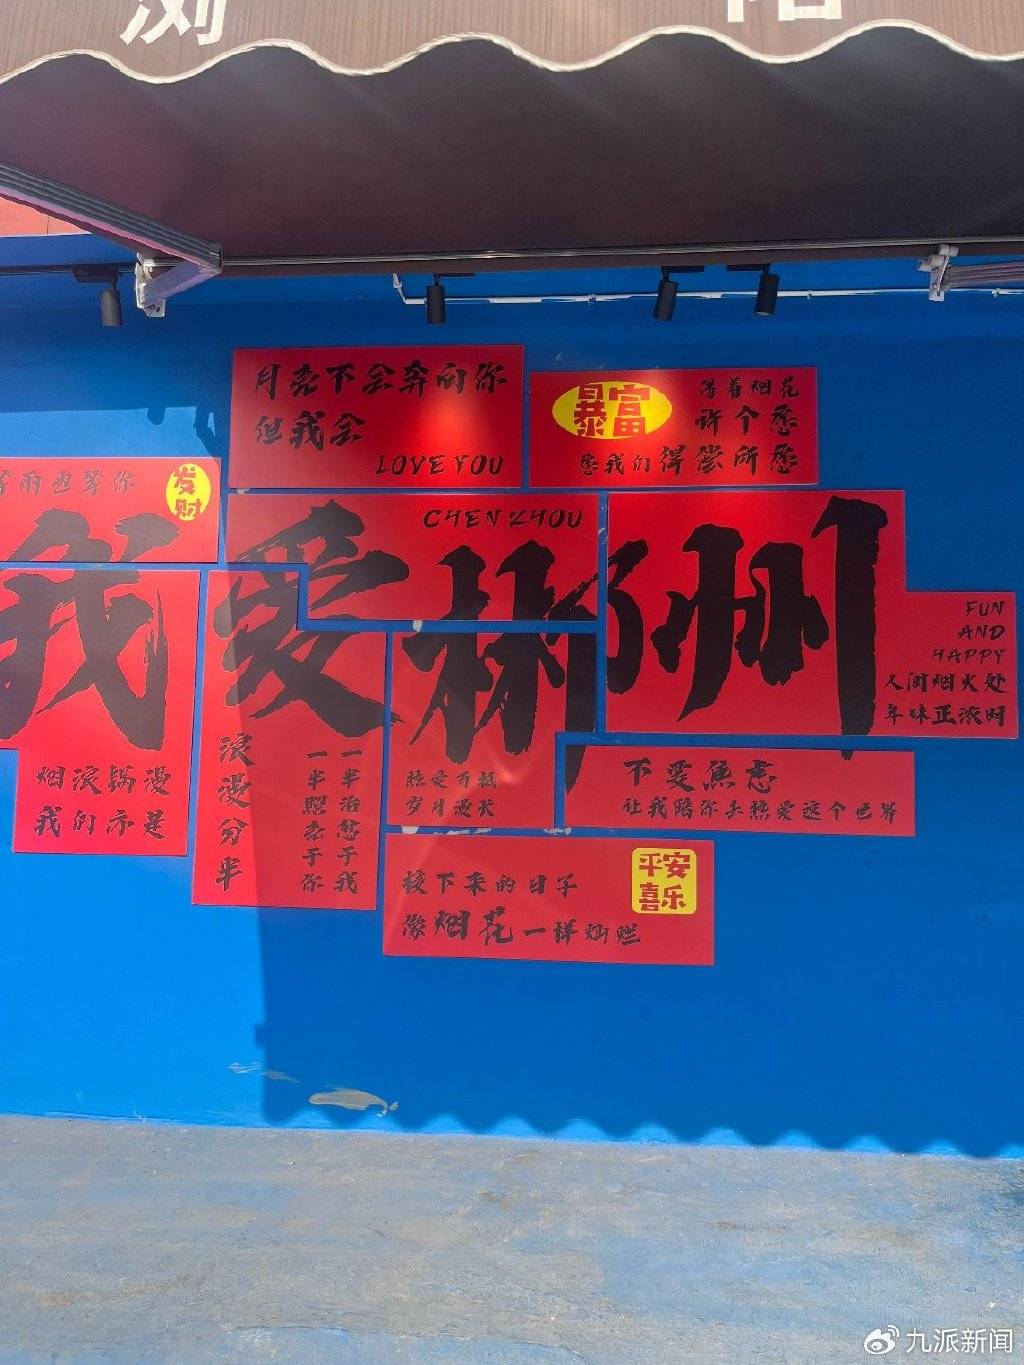 浏 阳
月亮不会奔向你
但我会
LOVE YOU
暴富
着烟花
许个愿
愿我们得偿所愿
雨也等你
发财
我爱郴州
CHEN ZHOU
FUN
AND
HAPPY
人间烟火处
年味正浓时
我们亦是
浪漫分半
一半治愈于我
一半照亮于你
热爱可抵
岁月漫长
不要焦虑
让我陪你去热爱这个世界
接下来的日子
像烟花一样灿烂
平安
喜乐
九派新闻